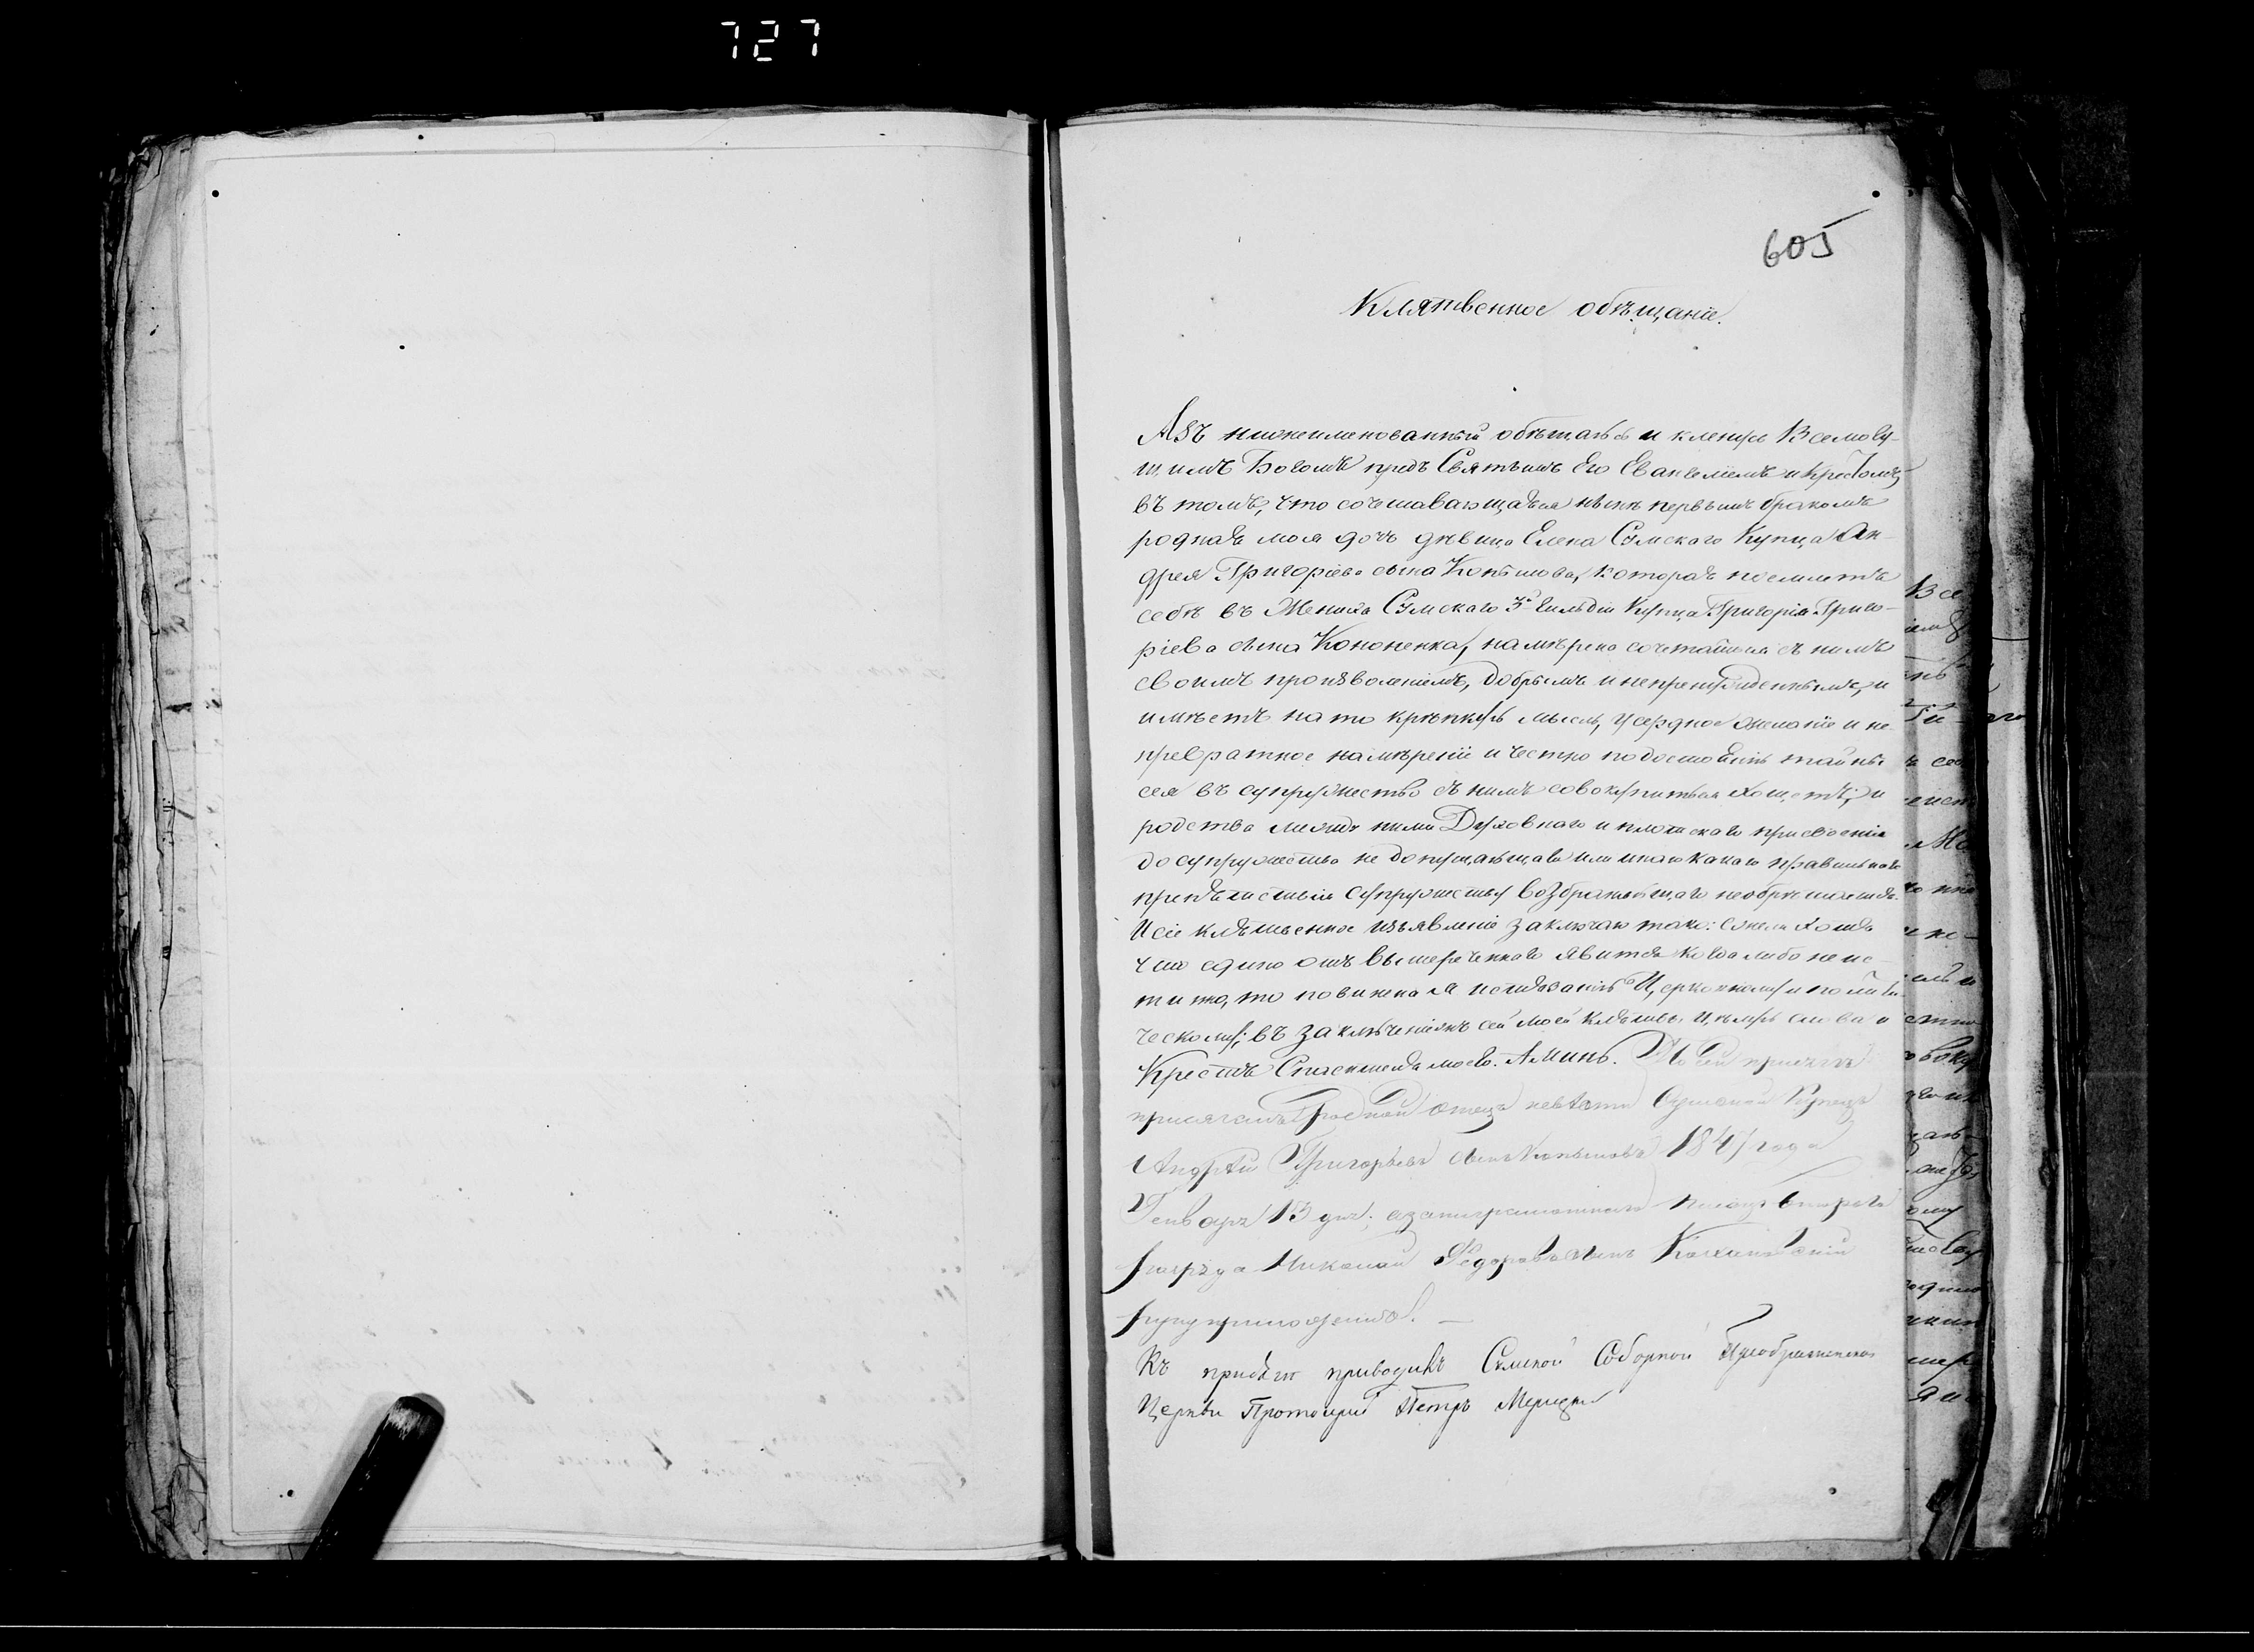 727
605
Клятвенное обѣщаніе.
Азъ нижеименованный обѣщаюсь и кленусь Всемогу-
щимъ Богомъ предъ Святымъ Его Евангеліемъ и Крестомъ
въ томъ, что сочетавающаяся нынѣ первымъ бракомъ
родная моя дочь дѣвица Елена Сумскаго Купца Ан-
дрея Григоріева сына Копылова, которая поемлетъ
себѣ въ Жениха Сумскаго 3й гильдіи Купца Григорія Григо-
ріева сына Кононенка, намѣрена сочетатися съ нимъ
своимъ произволеніемъ, добрымъ и непренужденнымъ, и
имѣетъ на то крѣпкую мысль, усердное желаніе и не-
превратное намѣреніе и честно по достоянію тайны
сея въ супружество съ нимъ совокупиться хощетъ; и
родства между ними Духовнаго и плотскаго присвоенія
до супружества не допущающаго или инаго какаго правильнаго
препятствія супружеству возбраняющаго необрѣтается.
И сіе клятвенное изъявленіе заключаю тако: ежели хотя
что едино отъ вышереченнаго явится когда либо не ис-
тинно, то повиненъ я истязанію Церковному и полити-
ческому; въ заключеніе сей моей клятвы, цѣлую слова и
Крестъ Спасителя моего. Аминь. По сей присягѣ
присягалъ родной отецъ невѣсты Сумской Купецъ
Андрей Григорьевъ сынъ Копыловъ 1847 года
Генваря 13 дня; а за неграмотнаго втораго
разряда Николай Федоровъ сынъ
руку приложилъ. —
Къ присягѣ приводилъ Сумской Соборной Преображенской
Церкви Протоіерей Петръ